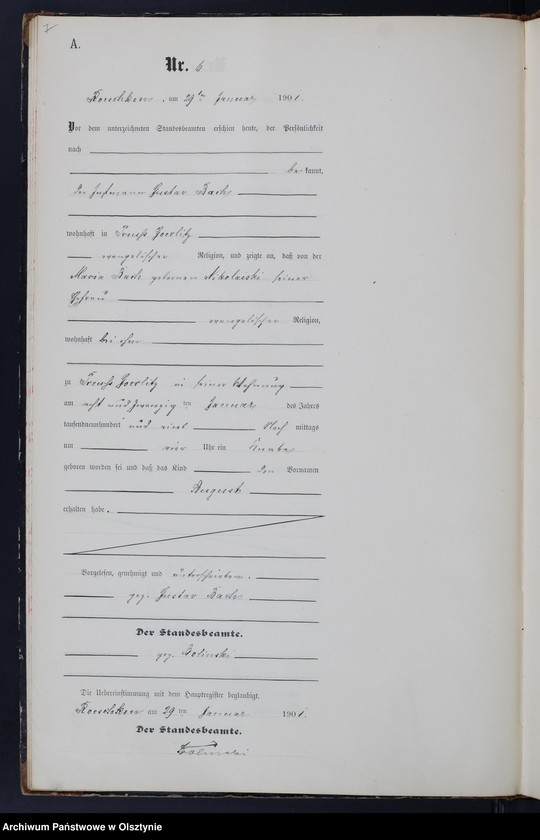 7
A.
Nr. 6
am 29ten Januar 1901.
Vor dem unterzeichneten Standesbeamten erschien heute, der Persönlichkeit
nach
be kannt,
der Gustav Bach
wohnhaft in Goerlitz
evangelischer Religion, und zeigte an, daß von der
Maria Bach geborenen Nikolaiski seiner
Ehefrau
evangelischer Religion,
wohnhaft bei ihm
zu Goerlitz in seiner Wohnung
am acht und zwanzig ten Januar des Jahres
tausendneunhundert und eins Nach mittags
um vier Uhr ein Knabe
geboren worden sei und daß das Kind den Vornamen
August
erhalten habe.
Vorgelesen, genehmigt und unterschrieben.
gez. Gustav Bach
Der Standesbeamte.
gez.
Die Uebereinstimmung mit dem Hauptregister beglaubigt.
am 29 ten Januar 1901.
Der Standesbeamte.
Archiwum Państwowe w Olsztynie